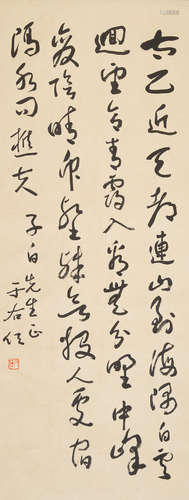 太乙近天都連山到海隅白雲
迴望合青靄入看無分野中峰
變陰晴衆壑殊欲投人處宿
隔水問樵夫 子白先生正
于右任